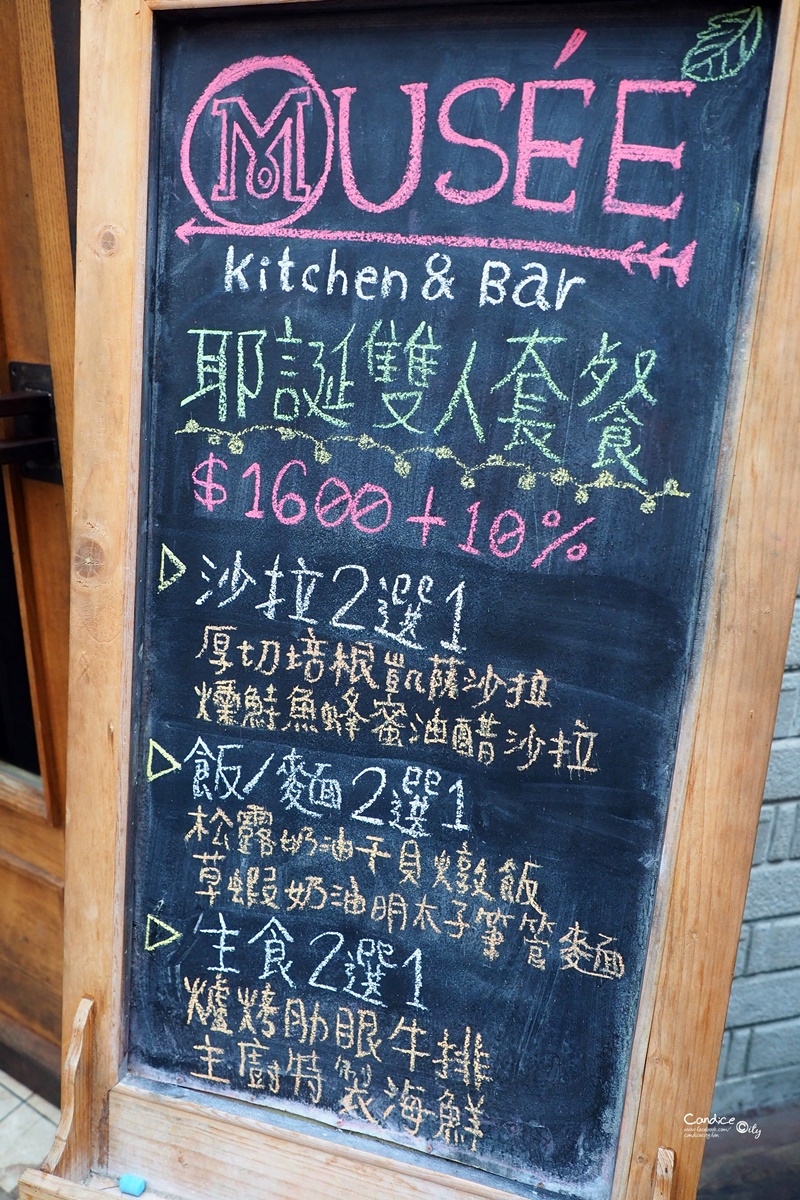 MUSÉE
Kitchen & Bar
耶誕雙人套餐
$1600+10%
沙拉2選1
厚切培根凱薩沙拉
燻鮭魚蜂蜜油醋沙拉
飯/麵2選1
松露奶油干貝燉飯
草蝦奶油明太子筆管麵
生食2選1
爐烤肋眼牛排
主廚特製海鮮
Candice City
www.facebook.com/